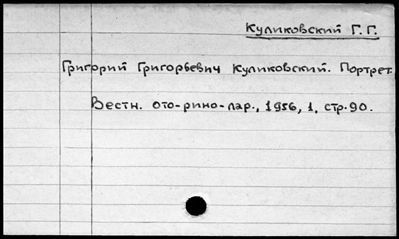 Куликовский Г. Г.
Григорий Григорьевич Куликовский. Портрет.
Вестн. ото-рино-лар., 1956, 1, стр. 90.